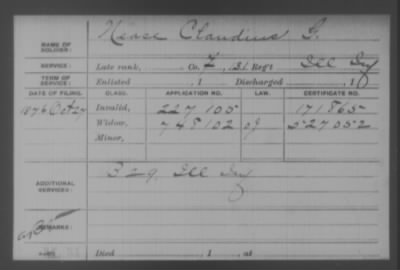 NAME OF SOLDIER: Nease Claudius G.
SERVICE: Late rank, Co. F, 131 Reg't Ill Inf
TERM OF SERVICE: Enlisted , 1 Discharged , 1
DATE OF FILING. CLASS. APPLICATION NO. LAW. CERTIFICATE NO.
1876 Oct 27 Invalid, 227 105 171.865
Widow, 748 102 527 052
Minor,
ADDITIONAL SERVICES: F 29 Ill Inf
REMARKS:
Died , 1 , at